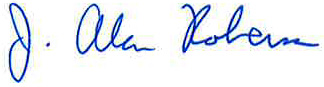 J. Alan Roberson